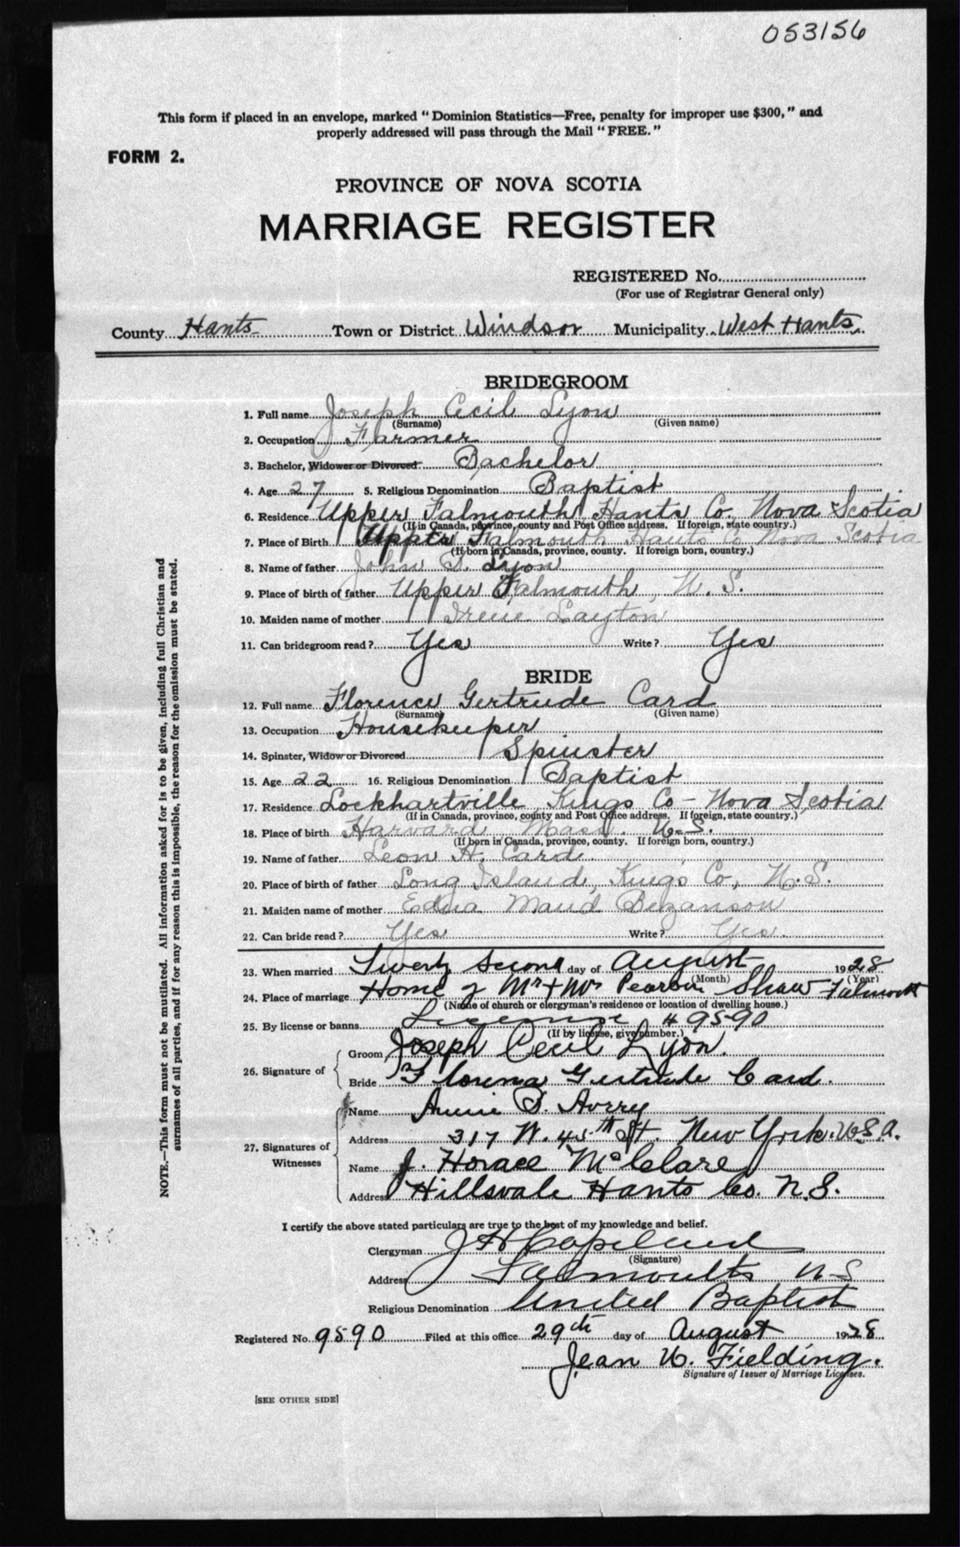 053156
This form if placed in an envelope, marked "Dominion Statistics—Free, penalty for improper use $300," and
properly addressed will pass through the Mail "FREE."
FORM 2.
PROVINCE OF NOVA SCOTIA
MARRIAGE REGISTER
REGISTERED No.
(For use of Registrar General only)
County Hants Town or District Windsor Municipality West Hants
BRIDEGROOM
1. Full name Joseph Cecil Lyon
(Surname) (Given name)
2. Occupation Farmer
3. Bachelor, Widower or Divorced Bachelor
4. Age 27 5. Religious Denomination Baptist
6. Residence Upper Falmouth Hants Co. Nova Scotia
(If in Canada, province, county and Post Office address. If foreign, state country.)
7. Place of Birth Upper Falmouth Hants Co Nova Scotia
(If born in Canada, province, county. If foreign born, country.)
8. Name of father John S. Lyon
9. Place of birth of father Upper Falmouth, N. S.
10. Maiden name of mother Irene Layton
11. Can bridegroom read? Yes Write? Yes
BRIDE
12. Full name Florence Gertrude Card
(Surname) (Given name)
13. Occupation Housekeeper
14. Spinster, Widow or Divorced Spinster
15. Age 22 16. Religious Denomination Baptist
17. Residence Lockhartville Kings Co - Nova Scotia
(If in Canada, province, county and Post Office address. If foreign, state country.)
18. Place of birth Harvard Mass. U.S.
(If born in Canada, province, county. If foreign born, country.)
19. Name of father Leon H. Card
20. Place of birth of father Long Island, Kings Co, N.S.
21. Maiden name of mother Edna Maud Bezanson
22. Can bride read? Yes Write? Yes.
23. When married Twenty second day of August 1928
(Month) (Year)
24. Place of marriage Home of Mr + Mrs Shaw Falmouth
(Name of church or clergyman's residence or location of dwelling house.)
25. By license or banns License # 9590
(If by license, give number.)
26. Signature of
Groom Joseph Cecil Lyon.
Bride Florence Gertrude Card.
27. Signatures of Witnesses
Name Annie S. Avery
Address 317 W. 45th St. New York. U.S.A.
Name J. Horace McClare
Address Hillsvale Hants Co. N.S.
I certify the above stated particulars are true to the best of my knowledge and belief.
Clergyman J H Copeland
(Signature)
Address Falmouth N S
Religious Denomination United Baptist
Registered No. 9590 Filed at this office 29th day of August 1928
Jean W. Fielding.
Signature of Issuer of Marriage Licenses.
[SEE OTHER SIDE]
NOTE.—This form must not be mutilated. All information asked for is to be given, including full Christian and
surnames of all parties, and if for any reason this is impossible, the reason for the omission must be stated.